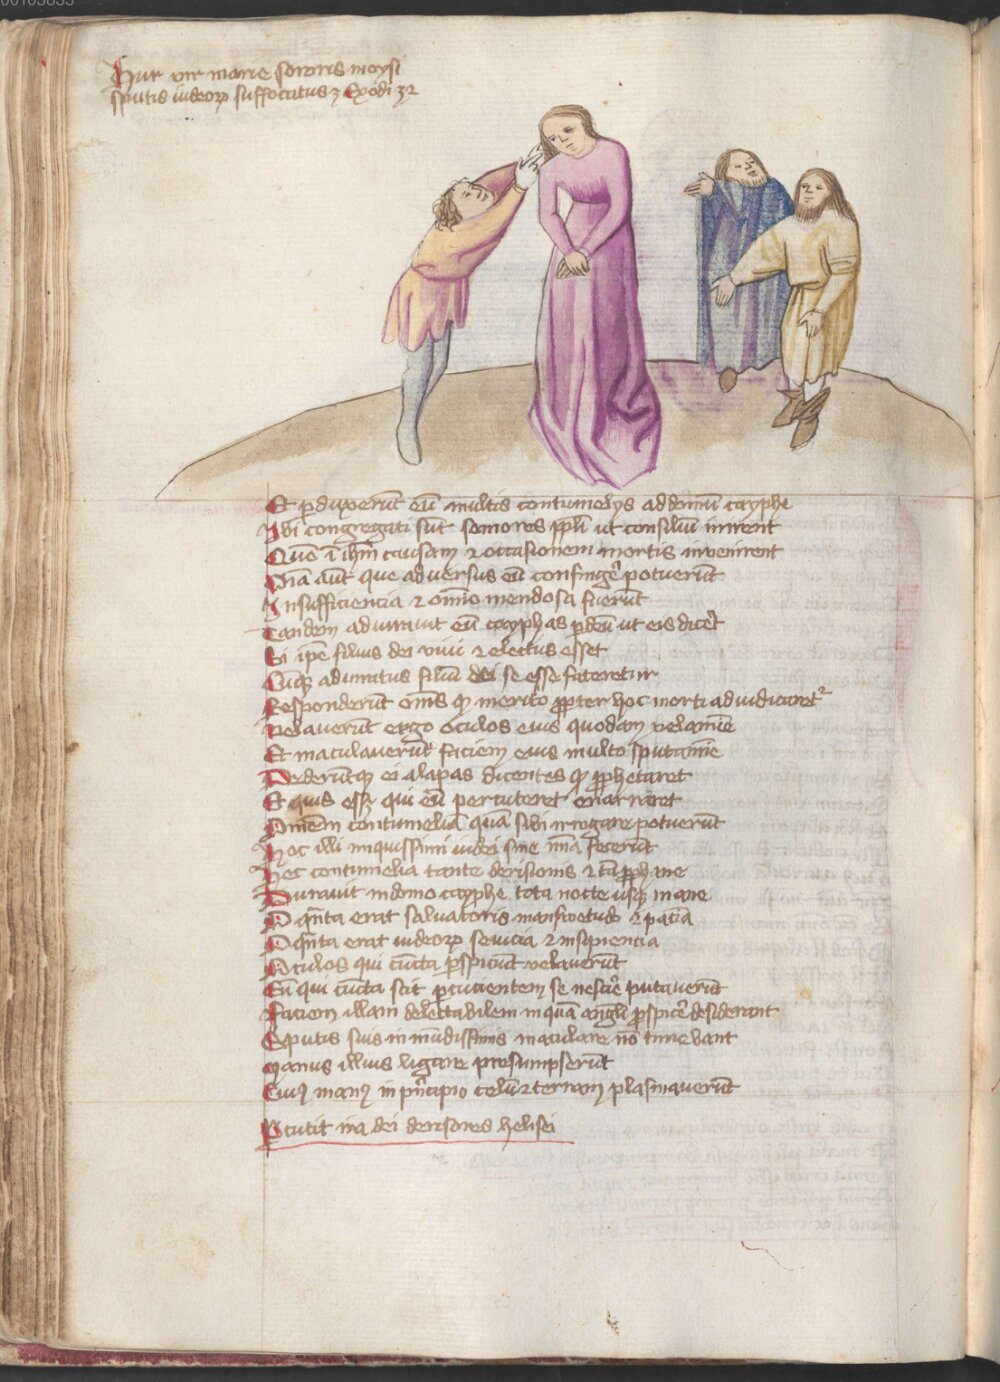 00103835
Hur vir marie sororis moysi
sputis iudeoꝝ suffocatus ⁊ Exodi 32
Et ꝑduxerūt eū multis contumelijs ad domū cayphe
Ibi congregati sūt seniores ppl̄i ut consiliū inirent
Quō ī ih̄m causam ⁊ occasionem mortis invenirent
aūt que adversus eū confingēr potuerūt
Insufficiencia ⁊ om̄io mendosa fuerūt
Tandem adiuravit eū cayphas ꝑ deū ut eis dicēt
Si ip̄e filius dei vivi ⁊ electus esset
Cūqꝫ adiuratus filiū dei se esse fateretur
Responderūt om̄s ꝙ merito ꝓpter hoc morti adiudicaretᷣ
Velaverūt ergo oculos eius quodam velamīe
Et maculaverūt faciem eius multo sputamīe
Dederūtqꝫ ei alapas dicentes ꝙ ꝓphetaret
Et quis esset qui eū percuteret enarraret
Omēm contumeliā quā sibi irrogare potuerūt
Hoc illi iniquissimi iudei sine fecerūt
Hec contumelia tante derisionis ⁊
Duravit in domo cayphe tota nocte usqꝫ mane
O qn̄ta erat salvatoris mansuetudo ⁊ paciā
O qn̄ta erat iudeoꝝ sevicia ⁊ insipiencia
Oculos qui cūcta ꝑspiciūt velaverūt
Eū qui cūcta scit ꝑcucientem se nescīre putaverūt
Faciem illam delectabilem in quā angl̄i ꝓspicēr desiderant
Sputis suis inmūdissimis maculare nō timebant
Manus illius ligare presumpserūt
Cuiꝰ manꝰ in pn̄cipio celū ⁊ terram plasmaverūt
Pcutit ira dei derisores helisei